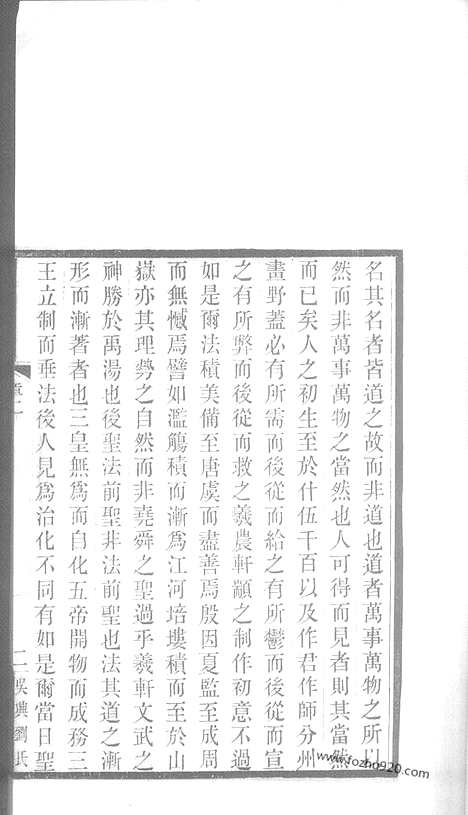 名其名者皆道之故而非道也道者萬事萬物之所以
然而非萬事萬物之當然也人可得而見者則其當然
而已矣人之初生至於什伍千百以及作君作師分州
畫野蓋必有所需而後從而給之有所鬱而後從而宣
之有所弊而後從而救之羲農軒顓之制作初意不過
如是爾法積美備至唐虞而盡善焉殷因夏監至成周
而無憾焉譬如濫觴積而漸爲江河培塿積而至於山
嶽亦其理勢之自然而非堯舜之聖過乎羲軒文武之
神勝於禹湯也後聖法前聖非法前聖也法其道之漸
形而漸著者也三皇無爲而自化五帝開物而成務三
王立制而垂法後人見爲治化不同有如是爾當日聖
二 吳興劉氏
www.fozhu920.com